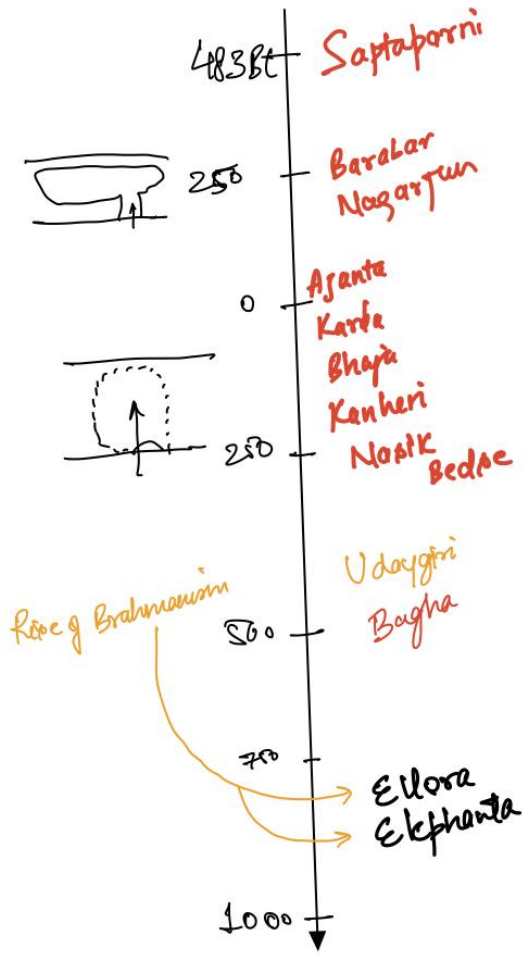 483BC Saptaparni
250 Barabar
Nagarjun
Ajanta
0
Karla
Bhaja
Kanheri
250 Nasik
Bedse
Udaygiri
Rise of Brahmanism
500 Bagha
750
Ellora
Elephanta
1000